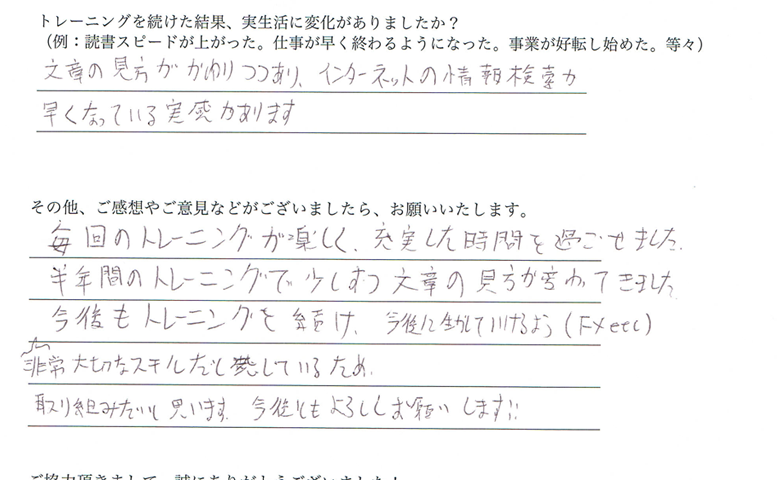 トレーニングを続けた結果、実生活に変化がありましたか？
（例：読書スピードが上がった。仕事が早く終わるようになった。事業が好転し始めた。等々）
文章の見方がかわりつつあり、インターネットの情報検索が
早くなっている実感があります
その他、ご感想やご意見などがございましたら、お願いいたします。
毎回のトレーニングが楽しく、充実した時間を過ごせました.
半年間のトレーニングで少しずつ文章の見方が変わってきました
今後もトレーニングを続け、今後に生かして行けるよう(FX etc)
非常に大切なスキルだと感じているため.
取り組みたいと思います. 今後ともよろしくお願いします!!
ご協力頂きまして、誠にありがとうございました！